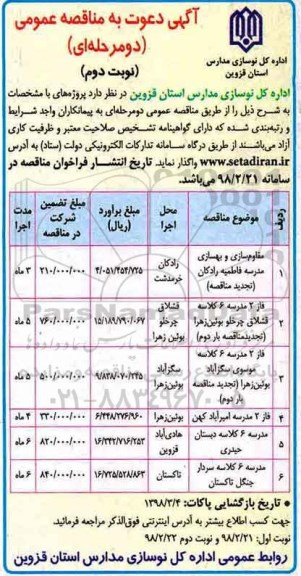 آگهی دعوت به مناقصه عمومی
(دومرحله‌ای)
(نوبت دوم)
اداره کل نوسازی مدارس
استان قزوین
اداره کل نوسازی مدارس استان قزوین در نظر دارد پروژه‌های با مشخصات
به شرح ذیل را از طریق مناقصه عمومی دومرحله‌ای به پیمانکاران واجد شرایط
و رتبه‌بندی شده که دارای گواهینامه تشخیص صلاحیت معتبر و ظرفیت کاری
آزاد می‌باشند از طریق درگاه سامانه تدارکات الکترونیکی دولت (ستاد) به آدرس
www.setadiran.ir واگذار نماید. تاریخ انتشار فراخوان مناقصه در
سامانه ۹۸/۲/۲۱ می‌باشد.
ردیف موضوع مناقصه محل اجرا مبلغ برآورد (ریال) مبلغ تضمین شرکت در مناقصه مدت اجرا
۱ مقاوم‌سازی و بهسازی مدرسه فاطمیه رادکان (تجدید مناقصه) رادکان خرمدشت ۴/۰۵۱/۴۵۴/۷۲۵ ۲۱۰/۰۰۰/۰۰۰ ۳ ماه
۲ فاز ۲ مدرسه ۶ کلاسه قشلاق چرخلو بوئین‌زهرا (تجدیدمناقصه بار دوم) قشلاق چرخلو بوئین زهرا ۱۵/۱۸۹/۷۹۰/۰۶۷ ۷۶۰/۰۰۰/۰۰۰ ۵ ماه
۳ فاز ۲ مدرسه ۶ کلاسه موسوی سگزآباد بوئین‌زهرا (تجدید مناقصه بار دوم) سگزآباد بوئین‌زهرا ۹/۸۳۸/۰۷۰/۲۳۵ ۵۰۰/۰۰۰/۰۰۰ ۵ ماه
۴ فاز ۲ مدرسه امیرآباد کهن بوئین‌زهرا ۶/۴۴۸/۲۷۶/۹۶۰ ۳۳۰/۰۰۰/۰۰۰ ۴ ماه
۵ مدرسه ۶ کلاسه دبستان حیدری هادی‌آباد قزوین ۱۶/۳۴۲/۷۱۶/۲۵۳ ۸۲۰/۰۰۰/۰۰۰ ۶ ماه
۶ مدرسه ۶ کلاسه سردار جنگل تاکستان تاکستان ۱۶/۷۲۵/۵۲۸/۸۶۳ ۸۴۰/۰۰۰/۰۰۰ ۶ ماه
• تاریخ بازگشایی پاکات: ۱۳۹۸/۳/۴
جهت کسب اطلاع بیشتر به آدرس اینترنتی فوق‌الذکر مراجعه فرمائید.
نوبت اول: ۹۸/۲/۲۱ و نوبت دوم ۹۸/۲/۲۲
روابط عمومی اداره کل نوسازی مدارس استان قزوین